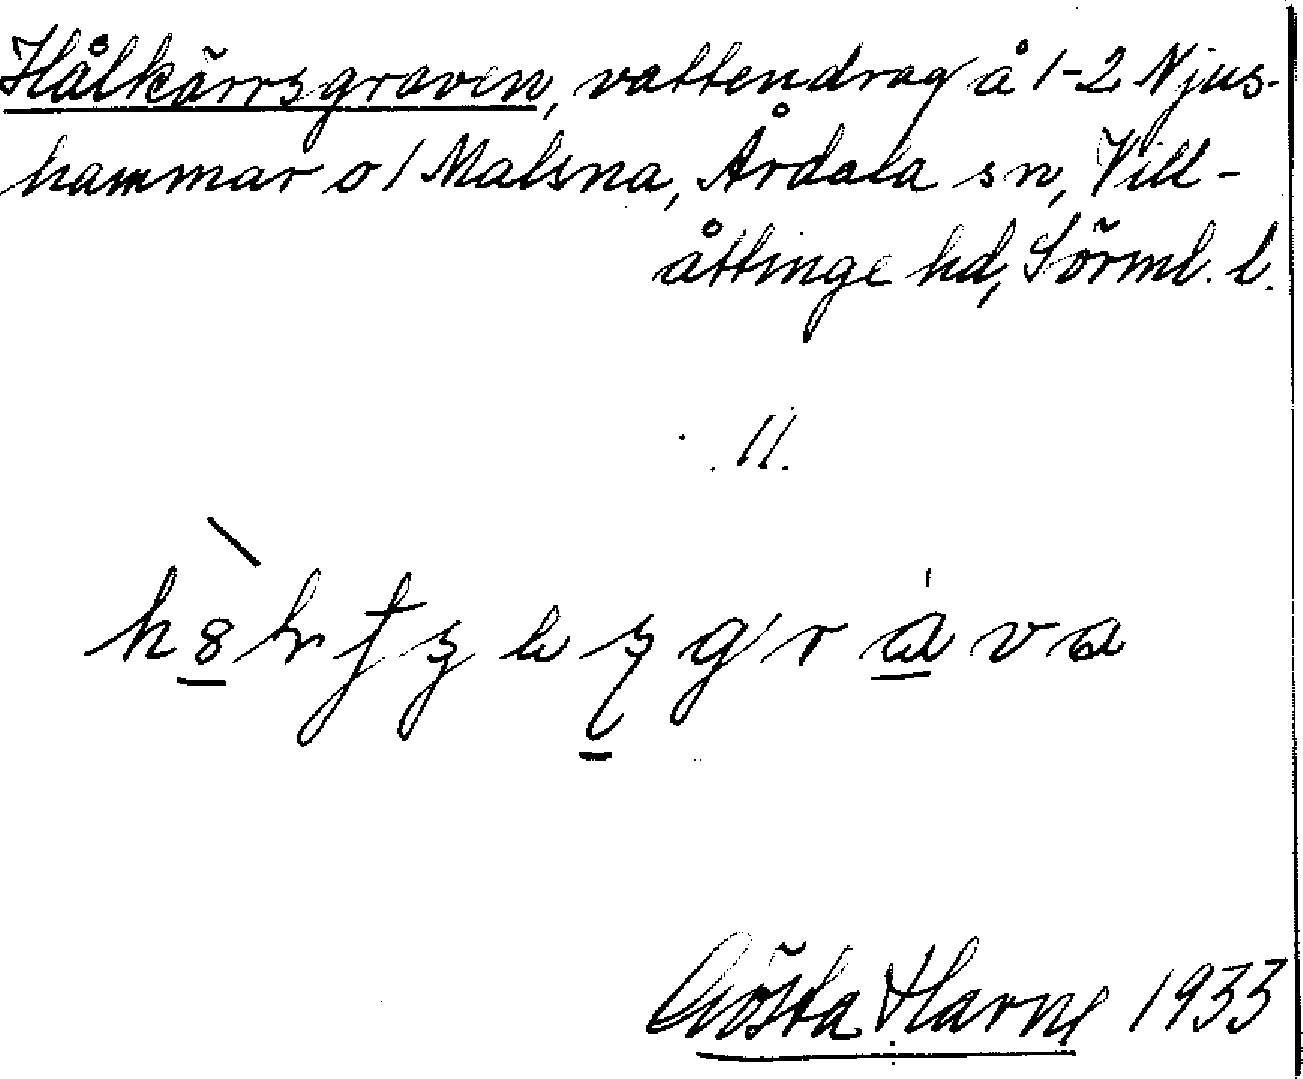 Hålkärrsgraven, vattendrag å 1-2 Njus-
hammar o 1 Malsna, Årdala sn, Vill-
åttinge hd, Sörml. l.
11.
Gösta Harne 1933